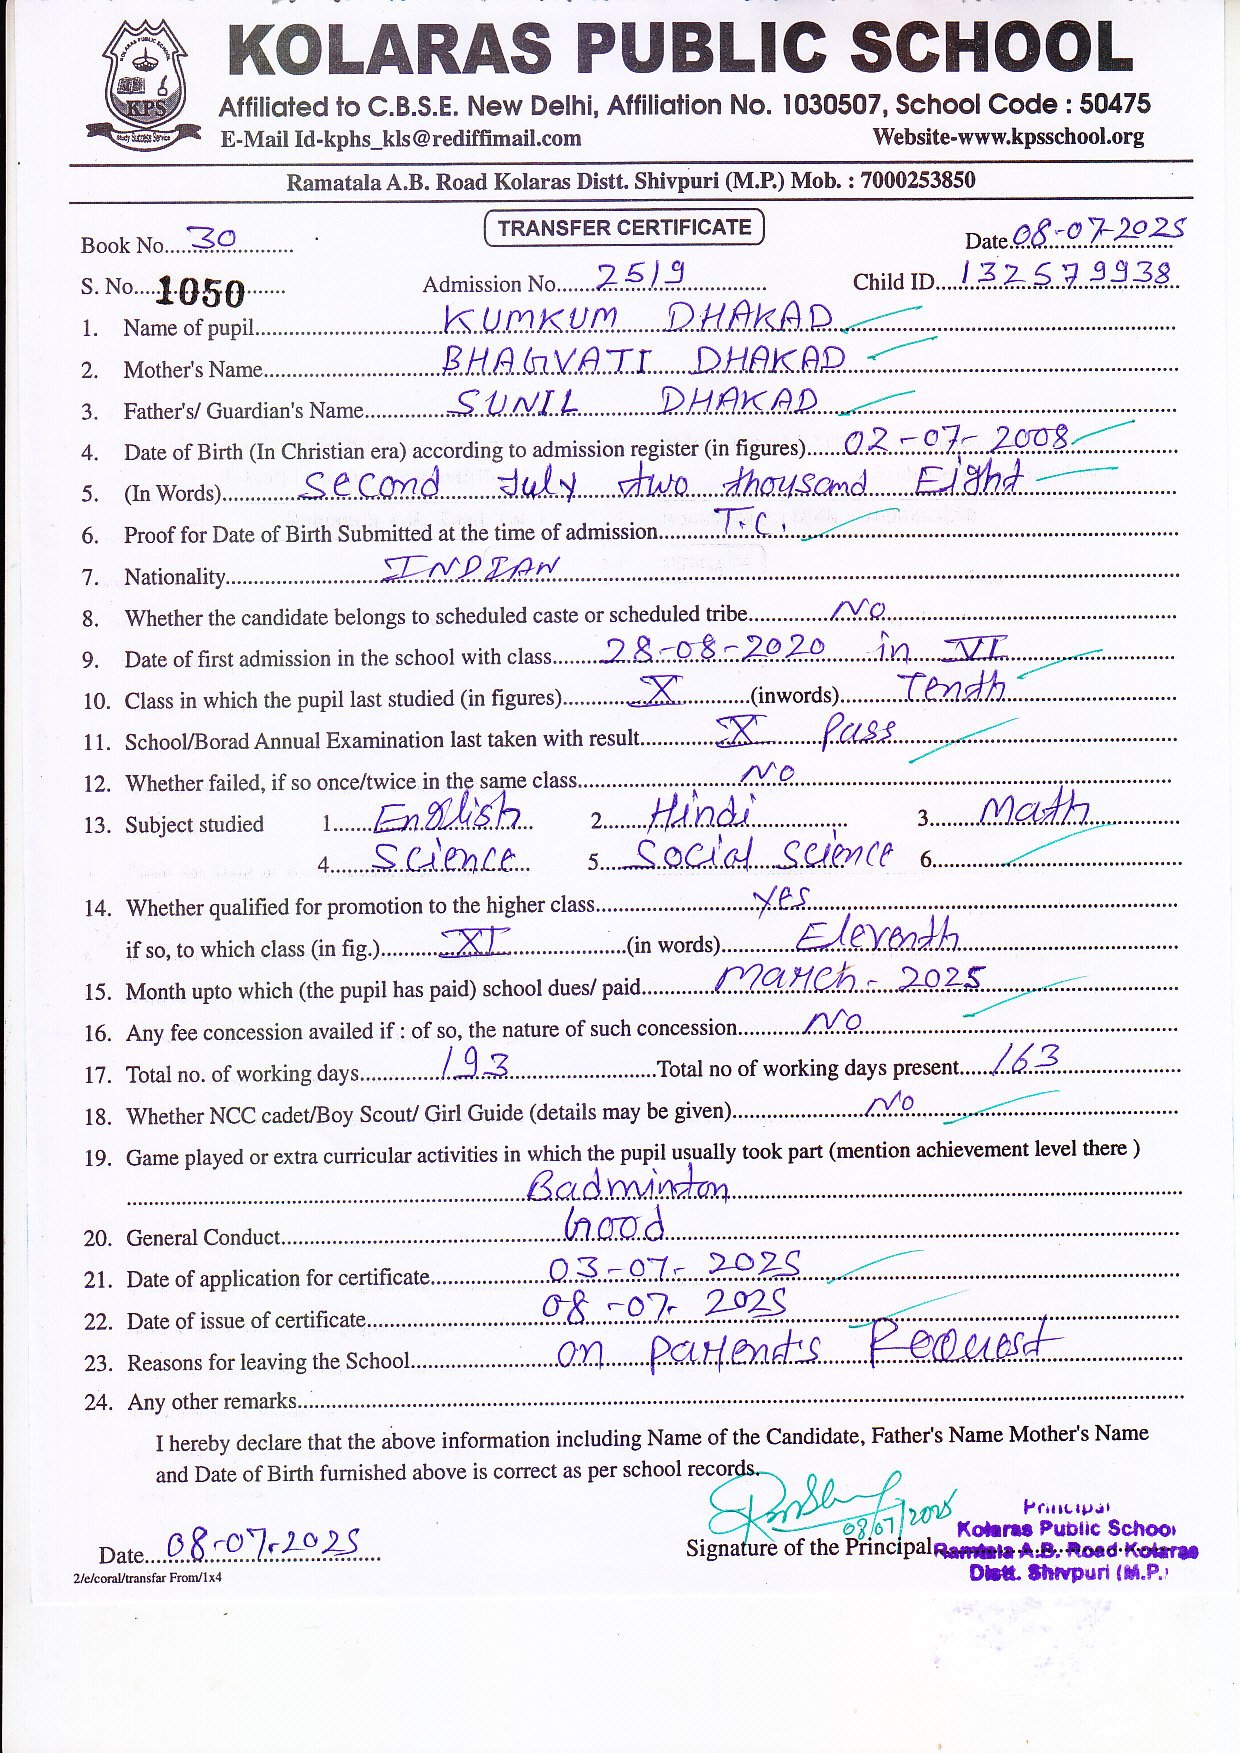 KOLARAS PUBLIC SCHOOL
KOLARAS PUBLIC SCHOOL
KPS
Study Success Service
Affiliated to C.B.S.E. New Delhi, Affiliation No. 1030507, School Code : 50475
E-Mail Id-kphs_kls@rediffimail.com Website-www.kpsschool.org
Ramatala A.B. Road Kolaras Distt. Shivpuri (M.P.) Mob. : 7000253850
TRANSFER CERTIFICATE
Book No....30.......... Date.08-07-2025
S. No....1050...... Admission No......2519............. Child ID....132579938
1. Name of pupil........KUMKUM DHAKAD........
2. Mother's Name........BHAGVATI DHAKAD........
3. Father's/ Guardian's Name........SUNIL DHAKAD........
4. Date of Birth (In Christian era) according to admission register (in figures)......02-07-2008
5. (In Words)........Second July two thousand Eight........
6. Proof for Date of Birth Submitted at the time of admission........T.C.........
7. Nationality........INDIAN........
8. Whether the candidate belongs to scheduled caste or scheduled tribe........NO........
9. Date of first admission in the school with class........28-08-2020 in VI........
10. Class in which the pupil last studied (in figures)........X........(inwords)........Tendh........
11. School/Borad Annual Examination last taken with result........X Pass........
12. Whether failed, if so once/twice in the same class........NO........
13. Subject studied 1......English.. 2.......Hindi............ 3........Math........
4.......Science... 5......Social Science 6........
14. Whether qualified for promotion to the higher class........yes........
if so, to which class (in fig.)........XI........(in words)........Elevendh........
15. Month upto which (the pupil has paid) school dues/ paid........March - 2025........
16. Any fee concession availed if : of so, the nature of such concession........NO........
17. Total no. of working days........193........Total no of working days present.....163........
18. Whether NCC cadet/Boy Scout/ Girl Guide (details may be given)........NO........
19. Game played or extra curricular activities in which the pupil usually took part (mention achievement level there )
........Badminton........
20. General Conduct........Good........
21. Date of application for certificate........03-07-2025........
22. Date of issue of certificate........08-07-2025........
23. Reasons for leaving the School........on parents Request........
24. Any other remarks........
I hereby declare that the above information including Name of the Candidate, Father's Name Mother's Name
and Date of Birth furnished above is correct as per school records.
08/07/2025
Principal
Kolaras Public School
Date....08-07-2025... Signature of the Principal
Ramtala A.B. Road Kolaras
Distt. Shivpuri (M.P.)
2/e/coral/transfar From/1x4